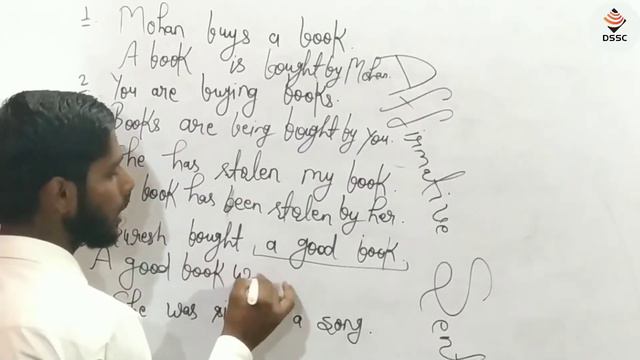 1. Mohan buys a book.
A book is bought by Mohan.
2. You are buying books.
Books are being bought by you.
She has stolen my book.
book has been stolen by her.
Suresh bought a good book.
A good book
She was a song.
Affirmative
DSSC